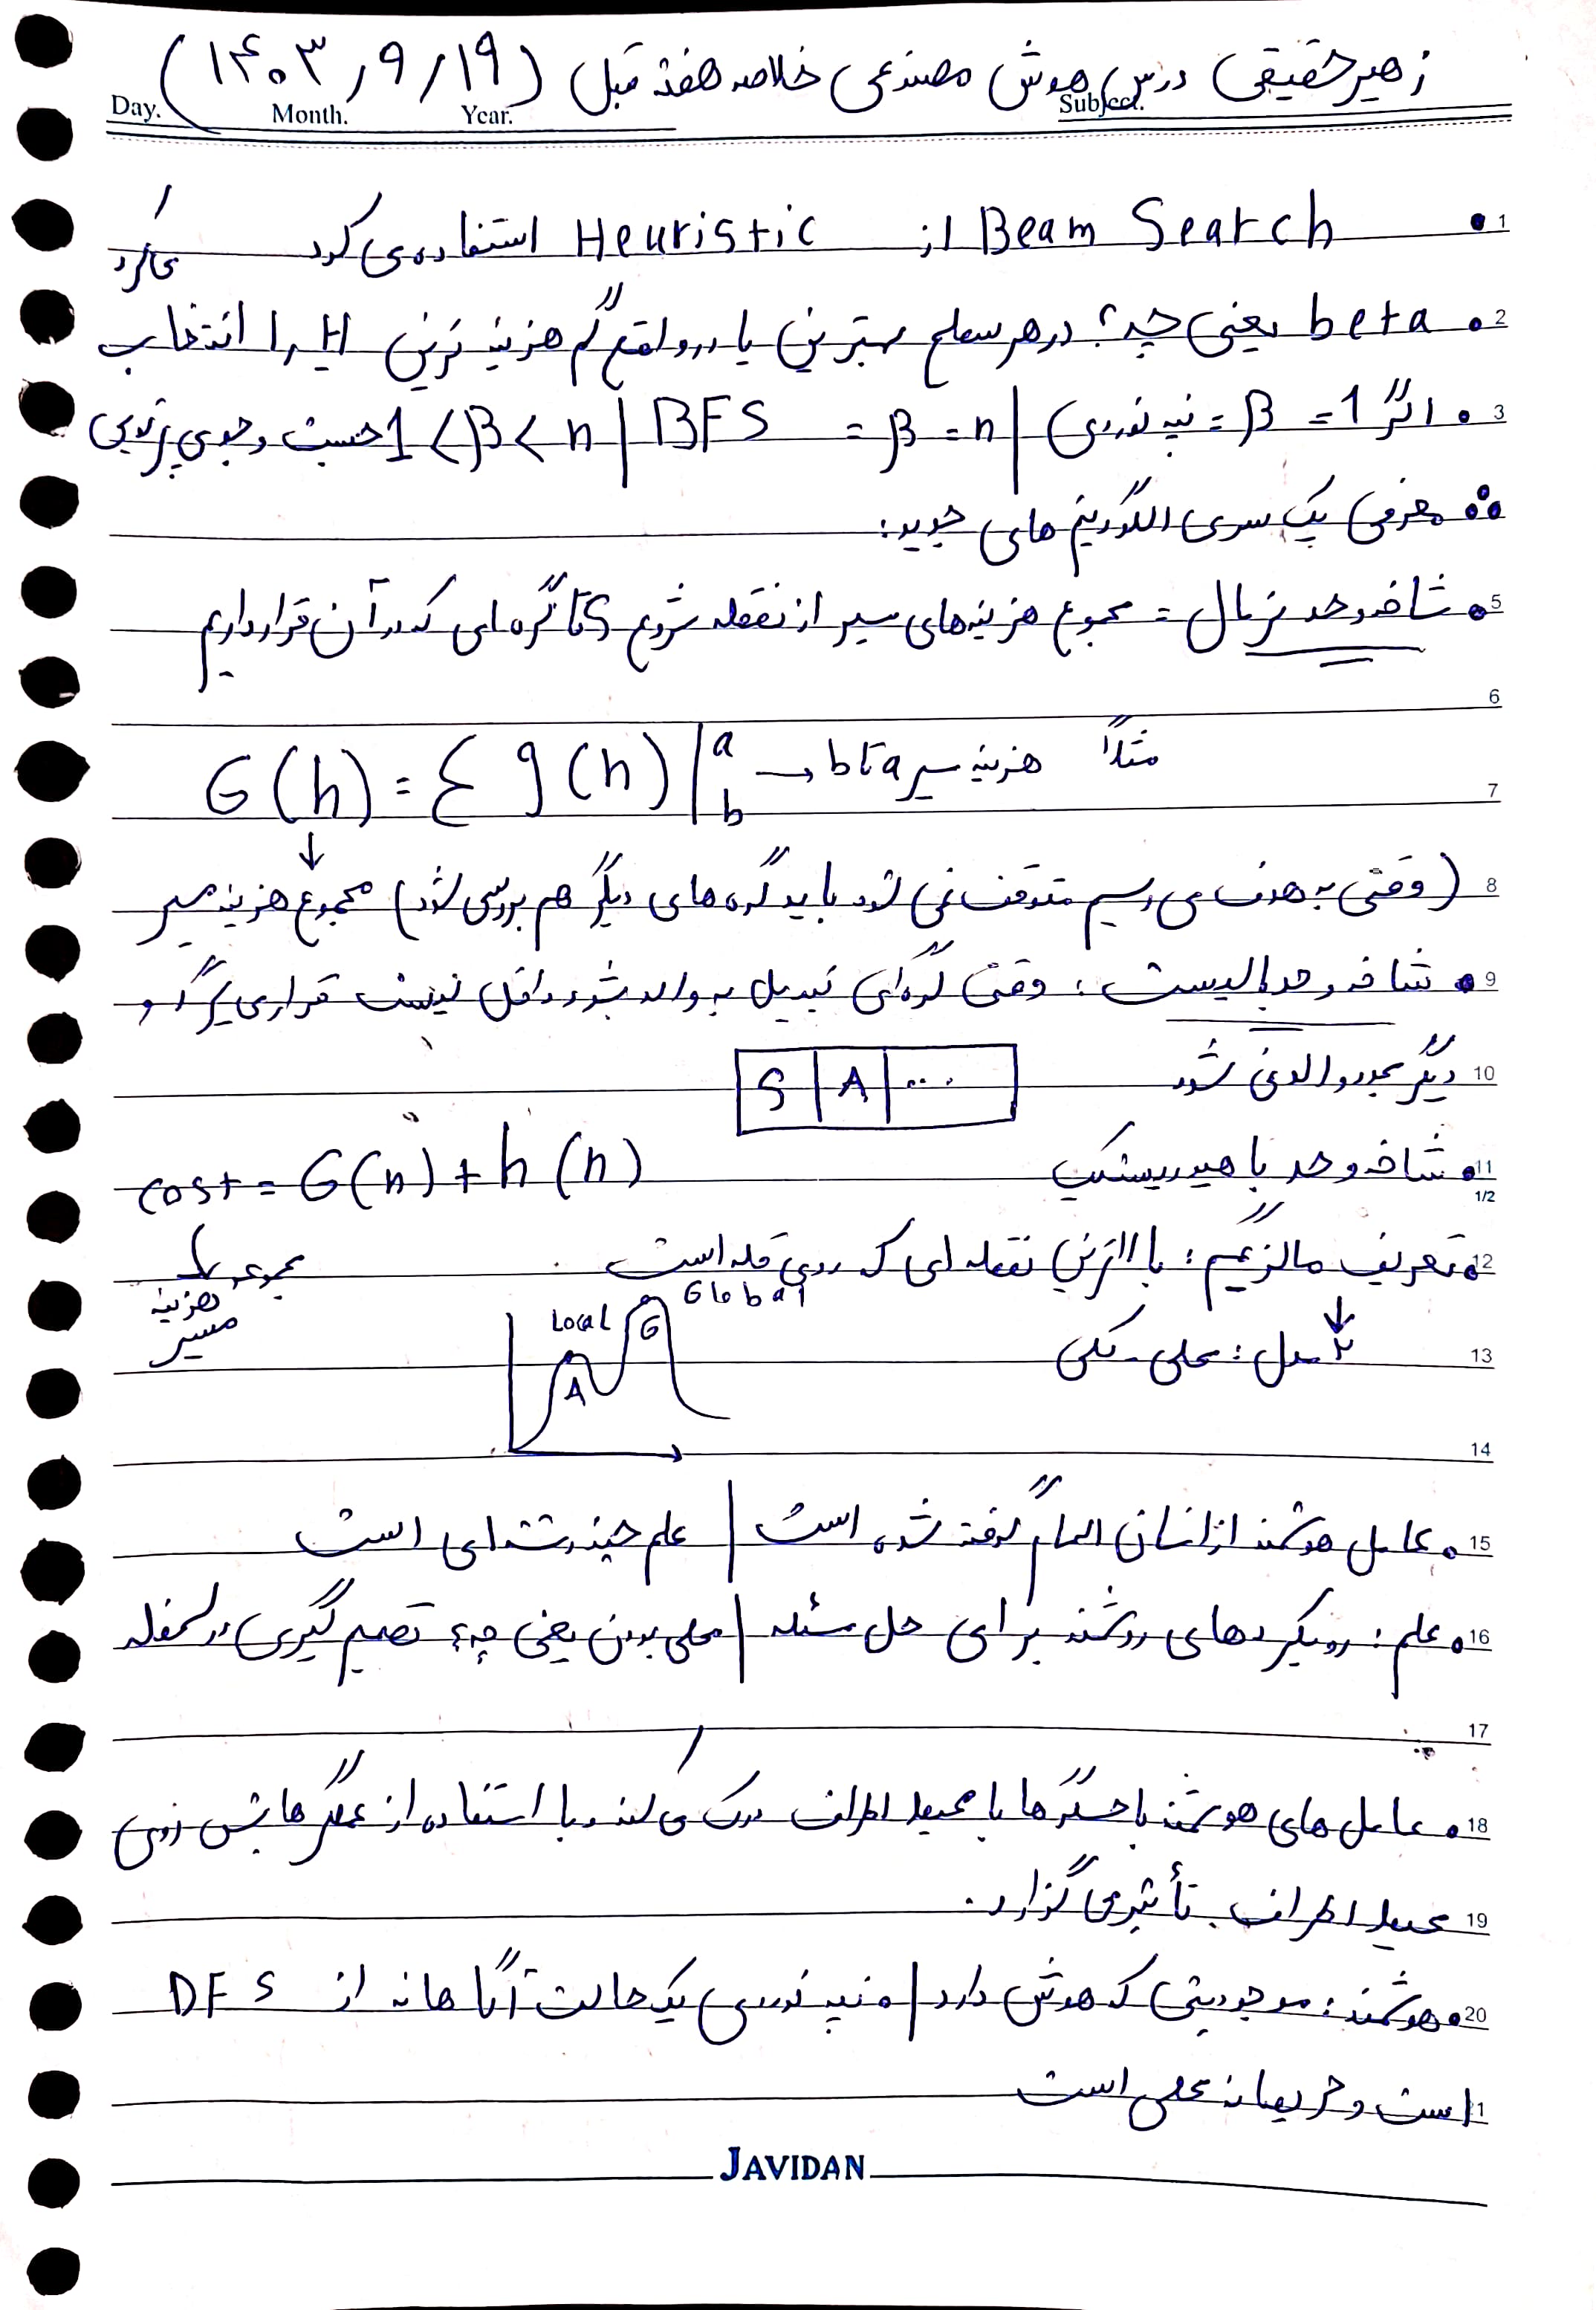 زهیر حقیقی درس هوش مصنوعی خلاصه هفته قبل (۱۴۰۳/۹/۱۹)
Day. Month. Year. Subject.
1 • Beam Search از Heuristic استفاده می کرد
2 • beta یعنی چه؟ در هر سطح بهترین یا در واقع کم هزینه ترین H را انتخاب می کرد
3 • اگر 1 = β = تپه نوردی | BFS = β = n | 1 < β < n جست و جوی پرتویی
معرفی یک سری الگوریتم های جدید:
5 • شاخه و حد نرمال = مجموع هزینه های مسیر از نقطه شروع S تا گره ای که در آن قرار داریم
6
7 G(h) = Σ g(h) | a b → هزینه مسیر a تا b مثلاً
8 (وقتی به هدف می رسیم متوقف نمی شود باید گره های دیگر هم بررسی شود) مجموع هزینه مسیر
9 • شاخه و حد با لیست : وقتی گره ای تبدیل به والد بشود داخل لیست قرار می گیرد و
10 دیگر مجدد والد نمی شود
S | A | ...
11 • شاخه و حد با هیوریستیک cost = G(n) + h(n)
1/2
مجموعه هزینه مسیر
12 • تعریف ماکزیمم : بالاترین نقطه ای که روی قله است
Local Global
A G
13 ۲ مدل : محلی - کلی
14
15 • عامل هوشمند از انسان الهام گرفته شده است | علم چند رشته ای است
16 • علم : رویکردهای روشمند برای حل مسئله | محلی بودن یعنی چه؟ تصمیم گیری در لحظه
17
18 • عامل های هوشمند با حسگرها با محیط اطراف درک می کند و با استفاده از عملگرهایش روی
19 محیط اطراف تأثیر می گذارد.
20 • هوشمند : موجودیتی که هوش دارد | • تپه نوردی یک حالت آگاهانه از DFS
21 است و حریصانه محلی است
JAVIDAN